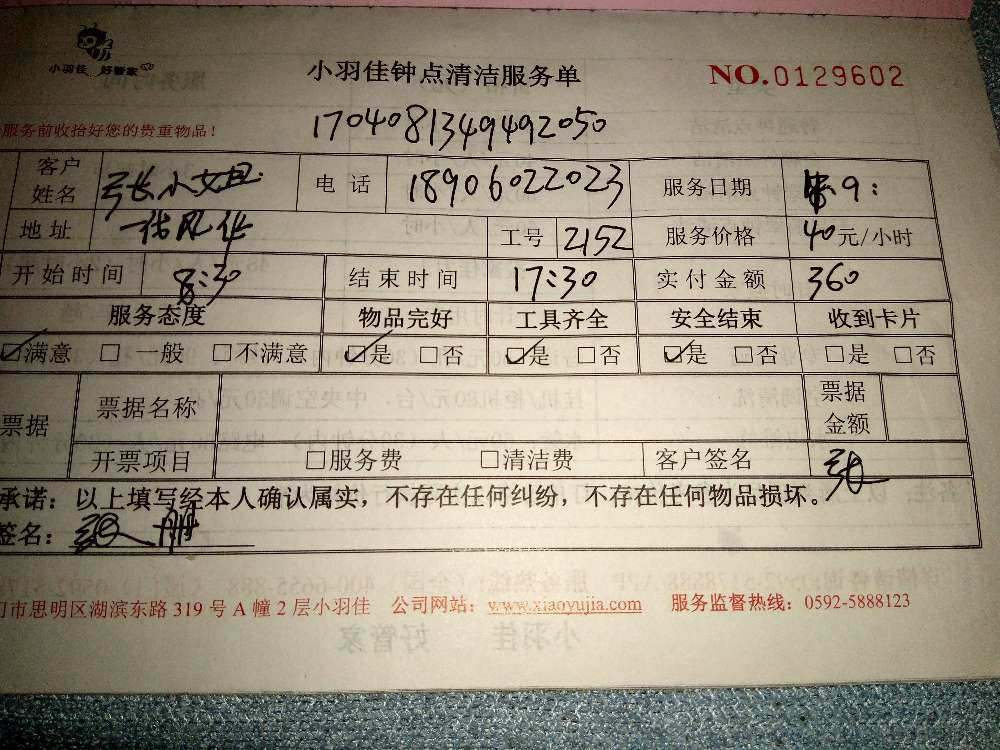 小羽佳 好管家
小羽佳钟点清洁服务单 NO.0129602
服务前收拾好您的贵重物品！ 1704081349492050
客户姓名 张小姐 电话 18906022023 服务日期 9：
地址 工号 2152 服务价格 40元/小时
开始时间 8:30 结束时间 17:30 实付金额 360
服务态度 物品完好 工具齐全 安全结束 收到卡片
☑满意 □一般 □不满意 ☑是 □否 ☑是 □否 ☑是 □否 □是 □否
票据 票据名称 票据金额
开票项目 □服务费 □清洁费 客户签名 张
承诺：以上填写经本人确认属实，不存在任何纠纷，不存在任何物品损坏。
签名：
门市思明区湖滨东路 319 号 A 幢 2 层小羽佳 公司网站：www.xiaoyujia.com 服务监督热线：0592-5888123